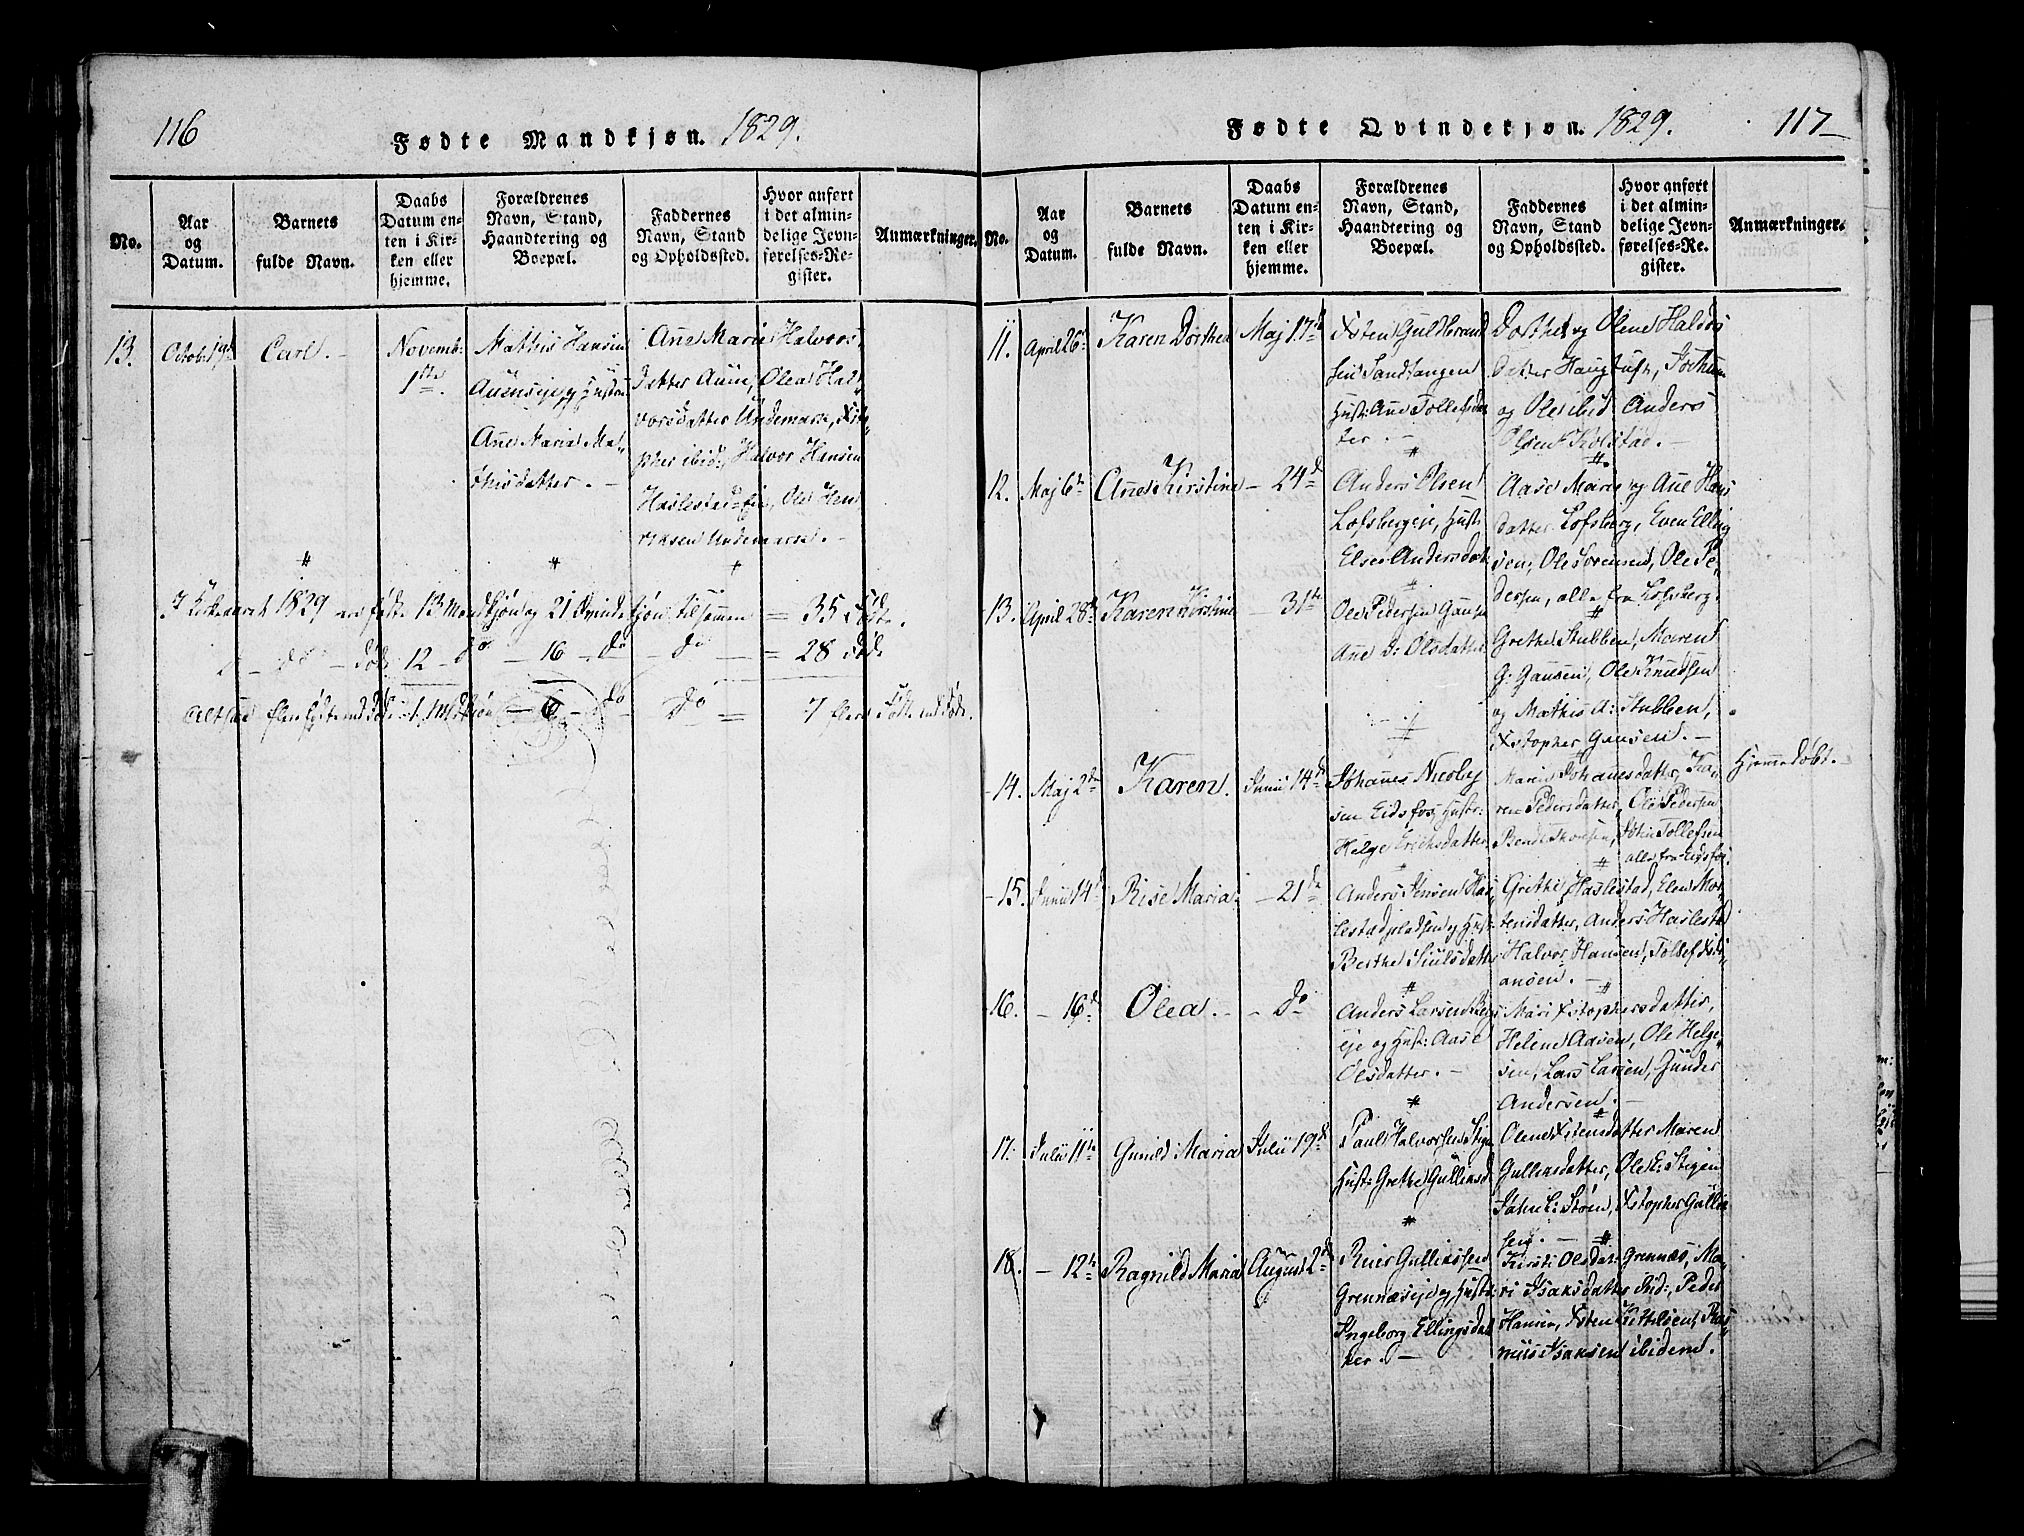 116
Fødte Mandkjøn. 1829.
No.
Aar og Datum.
Barnets fulde Navn.
Daabs Datum enten i Kirken eller hjemme.
Forældrenes Navn, Stand, Haandtering og Boepæl.
Faddernes Navn, Stand og Opholdssted.
Hvor anført i det almindelige Jevnførelses-Register.
Anmærkninger.
13.
Octob. 19de
Carl. -
Novemb.
1ste
Mathis Hansen
Auenseje og Hustru
Ane Maria Mat-
hisdatter. -
Ane Marie Halvors-
datter Auen, Olea Hal-
vorsdatter Undemark, Xsto-
pher ibid:, Halvor Hansen
Haslestad-eje, Ole Hen-
riksen Undemark. -
I Kirkeaaret 1829 ere fødte 13 Mandkjøn og 21 Qvindekjøn tilsammen = 35 Fødte.
- do - Døde 12 - do - 16 - do - do = 28 Døde
Altsaa flere fødte end døde - 1 Mdkjøn - 6 - do - do = 7 flere Fødte end Døde.
Fødte Qvindekjøn. 1829.
117
No.
Aar og Datum.
Barnets fulde Navn.
Daabs Datum enten i Kirken eller hjemme.
Forældrenes Navn, Stand, Haandtering og Boepæl.
Faddernes Navn, Stand og Opholdssted.
Hvor anført i det almindelige Jevnførelses-Register.
Anmærkninger.
11.
April 26de
Karen Dorthea
Maj 17de
Xsten Guldbrand-
sen Sandtangen
Hust: Ane Tollefsdat-
ter. -
Dorthe og Olene Halvors-
datter Haugtuft, Jochum
og Ole ibid Anders
Olsen Kolstad. -
12.
Maj 6te
Ane Kirstine
- 24de
Anders Olsen
Lofsbergeje, Hust:
Else Andersdat:
Aase Marie og Ane Hans-
datter Lofsberg, Even Elling-
sen, Ole Sørensen, Ole Pe-
dersen, alle fra Lofsberg.
13.
April 28de
Karen Kirstine
- 31te
Ole Pedersen Gausen
Ane D: Olsdatter
Grethe Stubben, Maren
G: Gausen, Ole Knudsen
og Mathis A: Stubben,
Xstopher Gausen. -
14.
Maj 2den
Karen.
Junii 14de
Johanes Nicolaj-
sen Eidsfos, Hustr:
Helge Erichsdatter
Marie Johanesdatter, Ka-
ren Pedersdatter, Ole Pedersen
John Tollefsen
alle fra Eidsfos.
Hjemmedøbt.
15.
Junii 14de
Rise Maria
- 21de
Anders Jensen Has-
lestadpladsen og Hust:
Berthe Siulsdatter
Grethe Haslestad, Elen Mor-
tensdatter, Anders Haslestad
Halvor Hansen, Tollef Xsti-
ansen. -
16.
- 16de
Olea. -
- do
Anders Larsen
eje og Hust: Aase
Olsdatter. -
Mari Xstophersdatter,
Helene Aasen, Ole Helge-
sen, Lars Larsen, Gunder
Andersen. -
17.
Julii 11te
Gunild Maria
Julii 19de
Paul Halvorsen Stigen
Hust: Grethe Gulliksd.
Olene Xstensdatter Maren
Gulliksdatter, Ole E: Stigen
John L: Støen, Xstopher Gullik-
sen. -
18.
- 12te
Ragnild Maria
August 2de
Reier Gulliksen
Grennæseje og Hustr:
Ingeborg Ellingsdat-
ter. -
Kirsti Olsdat: Grennæs, Ma-
ri Isaksdatter ibid:, Peder
Hansen, Xsten Kittelsen, Ras-
mus Isaksen ibidem.